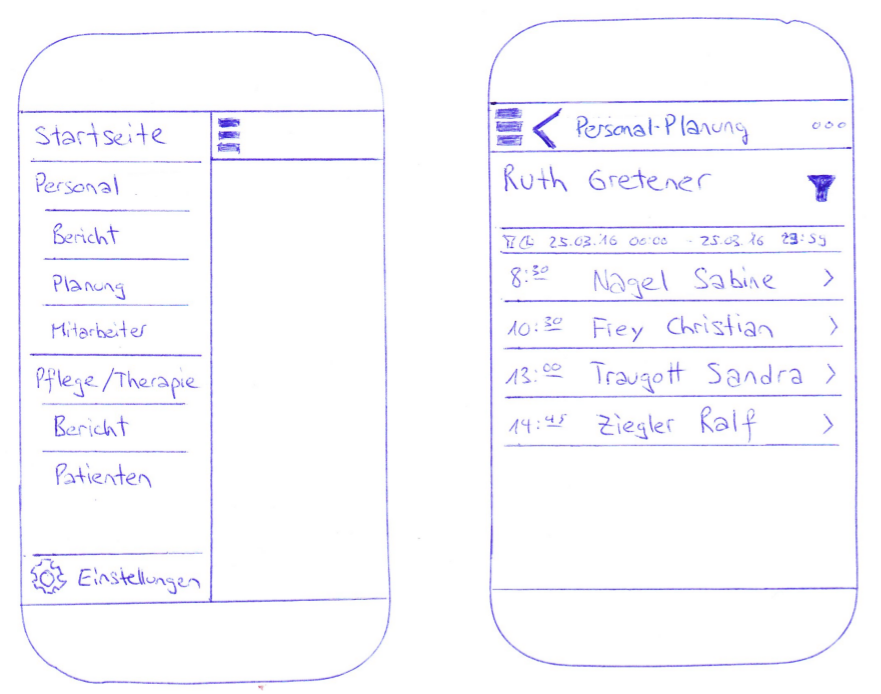 Startseite
Personal
Bericht
Planung
Mitarbeiter
Pflege/Therapie
Bericht
Patienten
Einstellungen
Personal-Planung
Ruth Gretener
25.03.16 00:00 - 25.03.16 23:59
8:30 Nagel Sabine >
10:30 Frey Christian >
13:00 Traugott Sandra >
14:45 Ziegler Ralf >